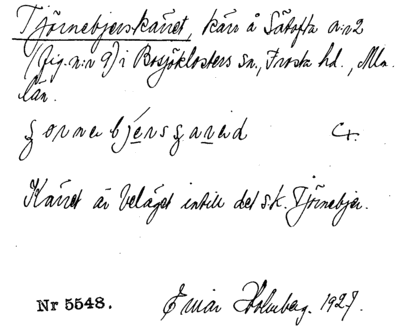 Tjörnebjerskärret, kärr å Sätofta n:r 2
(fig. n:r 9) i Bosjöklosters sn., Frosta hd., Mlm.
län.
Kärret är beläget intill det s.k. Tjörnebjer.
Nr 5548. Einar Holmberg. 1927.